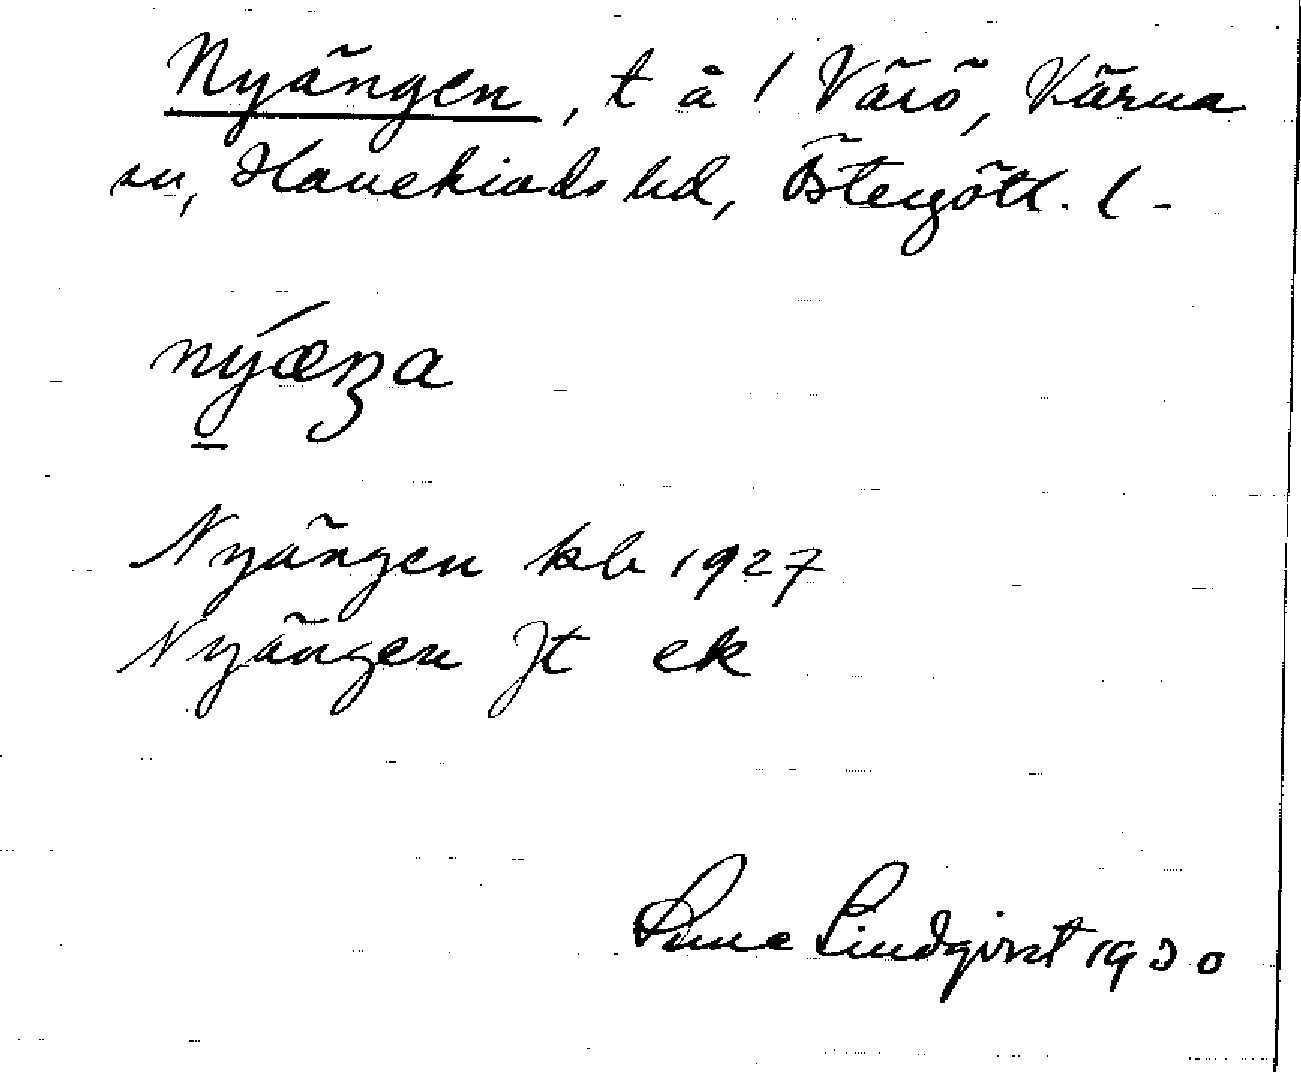 Nyängen, t å 1 Värö, Kärna
sn, Hanekinds hd, Östergötl. l -
nýæŋa
Nyängen kb 1927
Nyängen Jt ek
Sune Lindqvist 1930